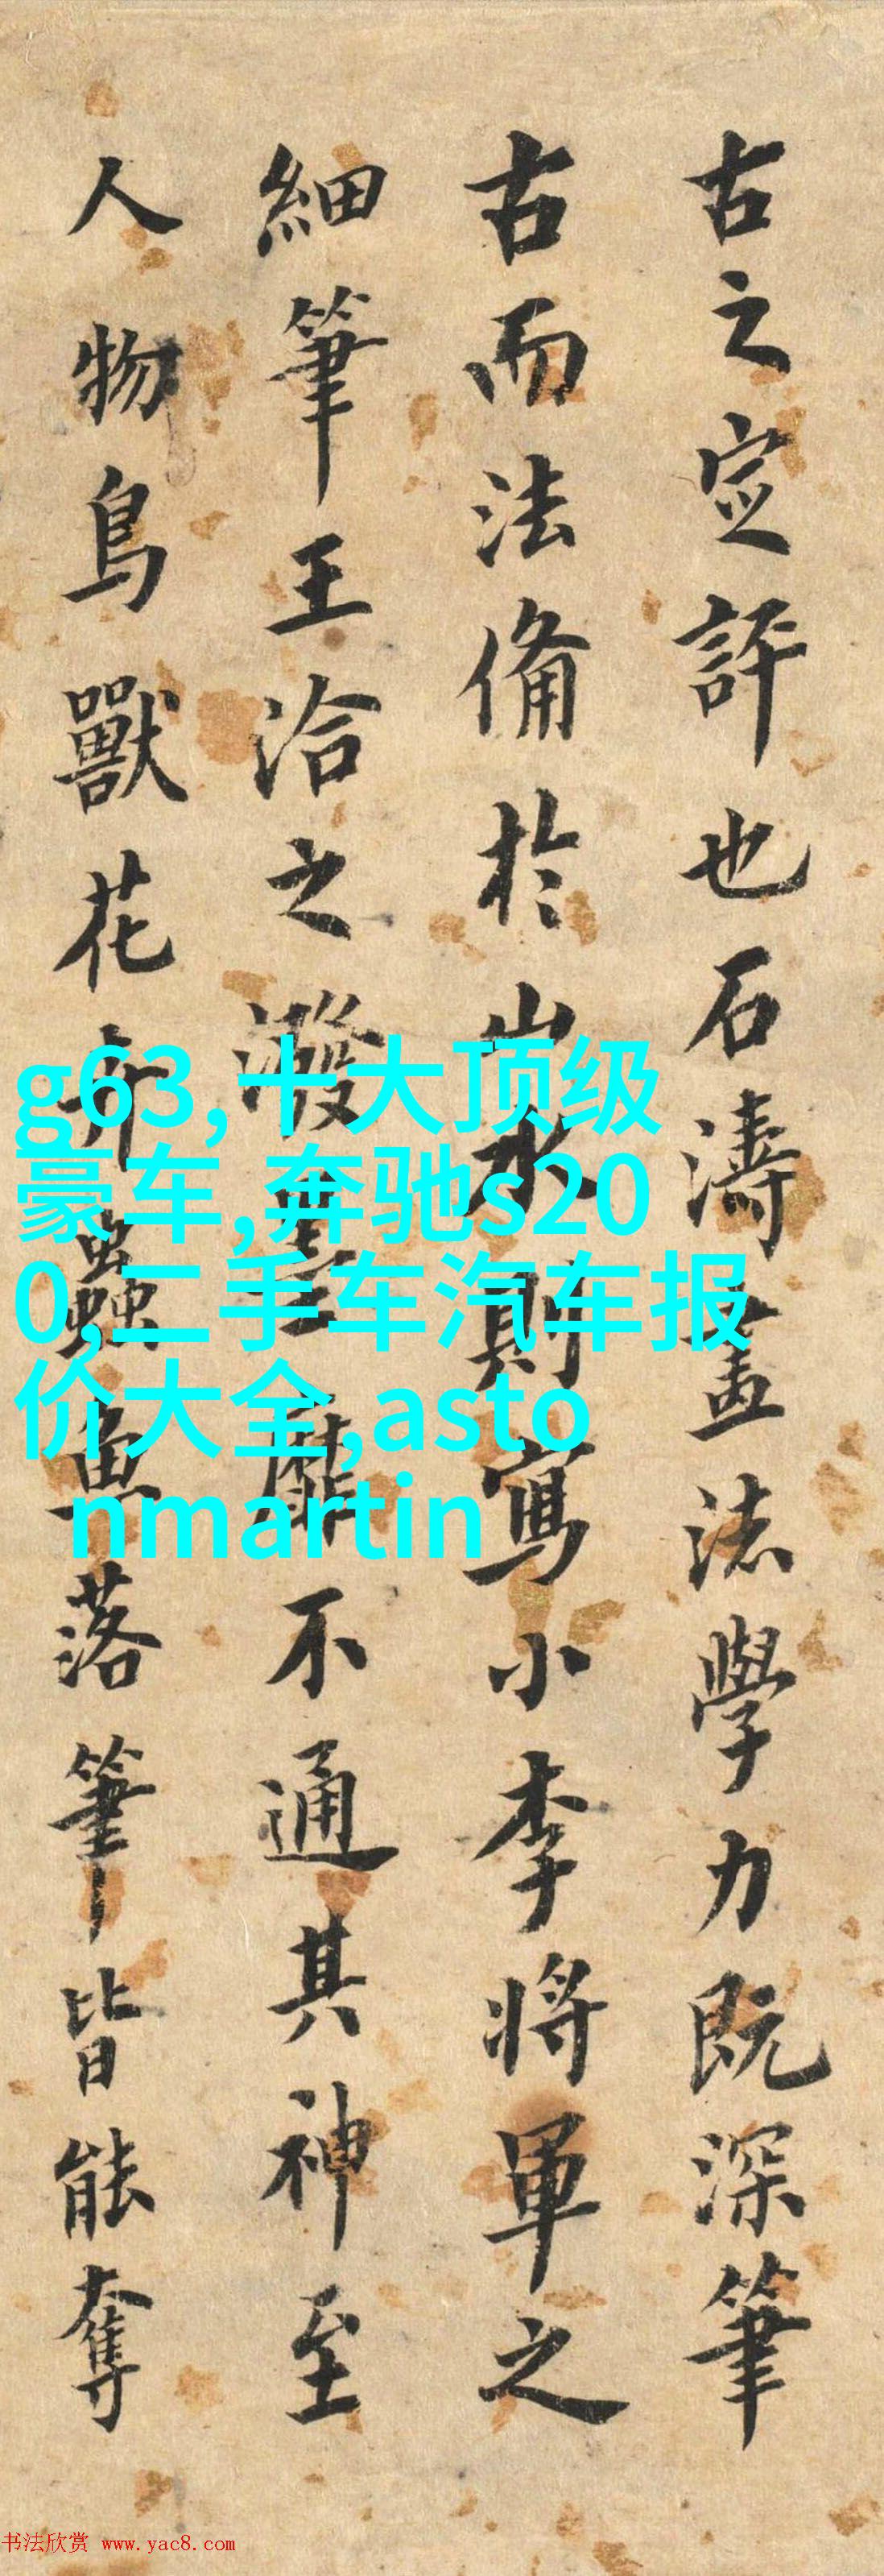 古之定評也石濤畫法學力既深筆
古而法備於山水則寫小李將軍之
細筆王洽之潑墨靡不通其神至
人物鳥獸花卉蟲魚落筆皆能奪
g63,十大顶级
豪车,奔驰s20
0,二手车汽车报
价大全,asto
nmartin
书法欣赏 www.yac8.com